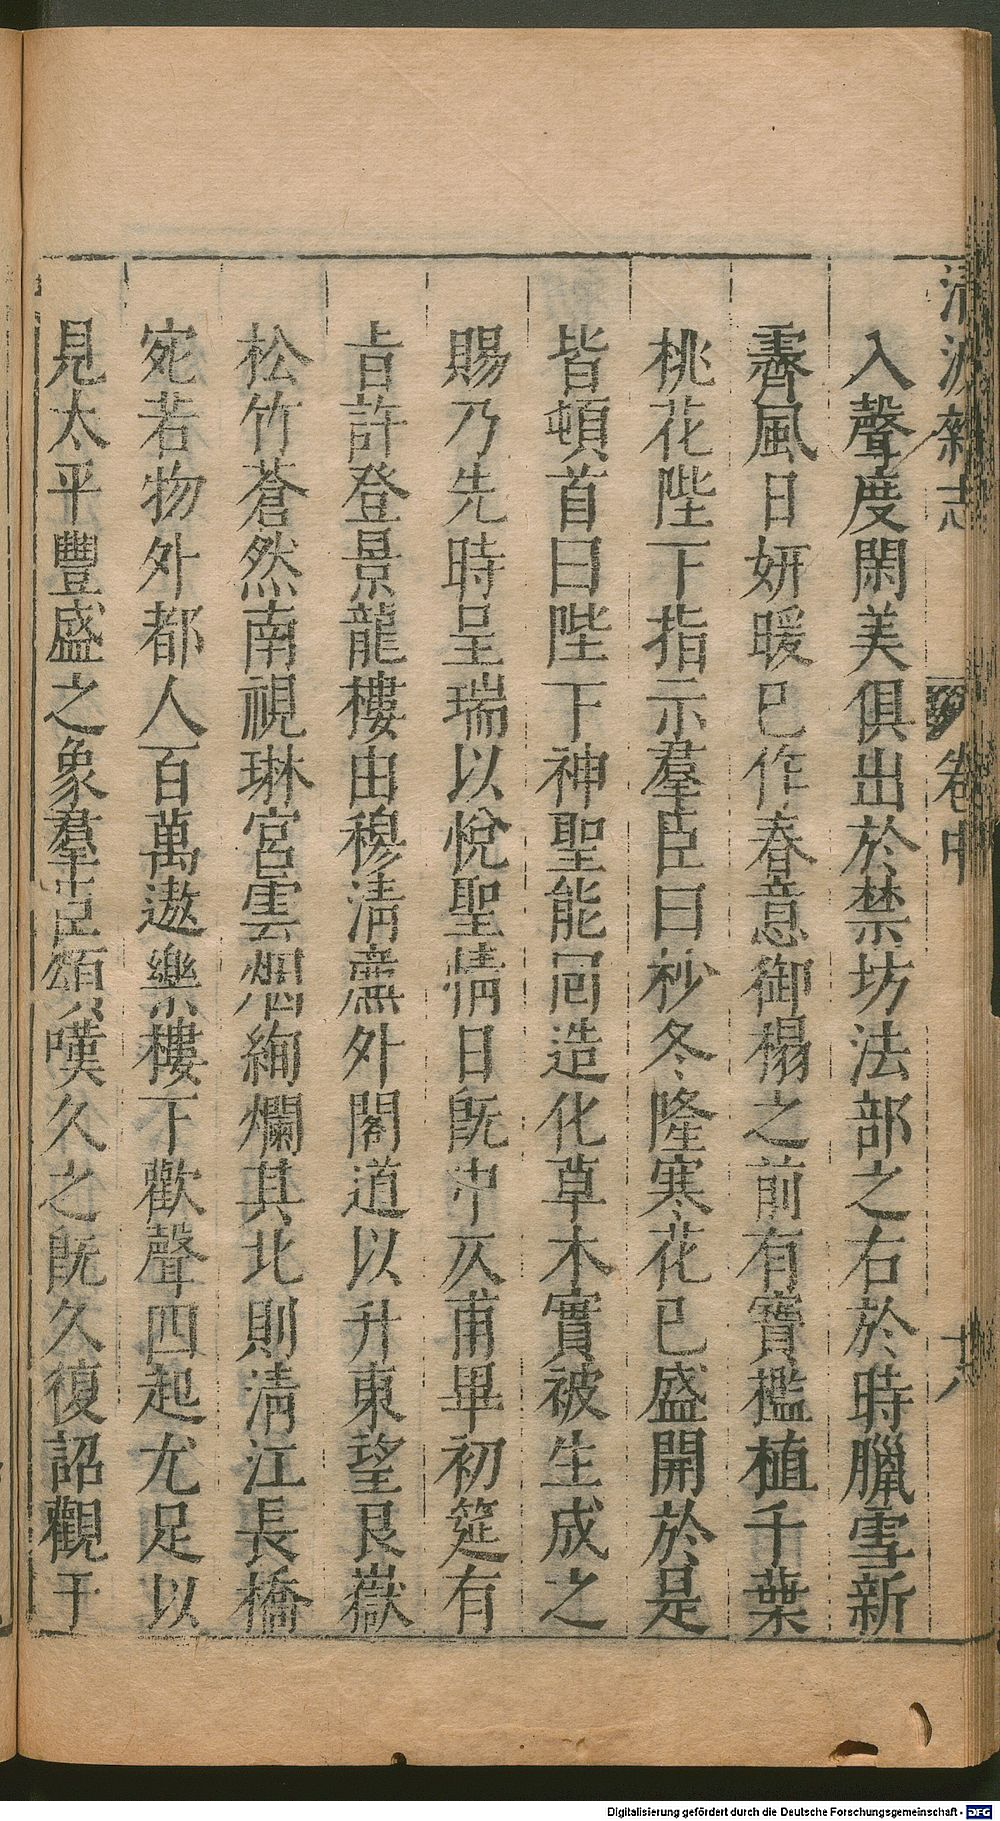 清波雜志 卷中 十八
入聲度閑美俱出於禁坊法部之右於時臘雪新
霽風日妍暖已作春意御榻之前有寶檻植千葉
桃花陛下指示羣臣曰杪冬隆寒花已盛開於是
皆頓首曰陛下神聖能囘造化草木實被生成之
賜乃先時呈瑞以悅聖情日旣中仄甫畢初筵有
旨許登景龍樓由穆清廡外閣道以升東望艮嶽
松竹蒼然南視琳宮雲烟絢爛其北則清江長橋
宛若物外都人百萬遨樂樓下歡聲四起尤足以
見太平豐盛之象羣臣頌嘆久之旣久復詔觀于
Digitalisierung gefördert durch die Deutsche Forschungsgemeinschaft - DFG